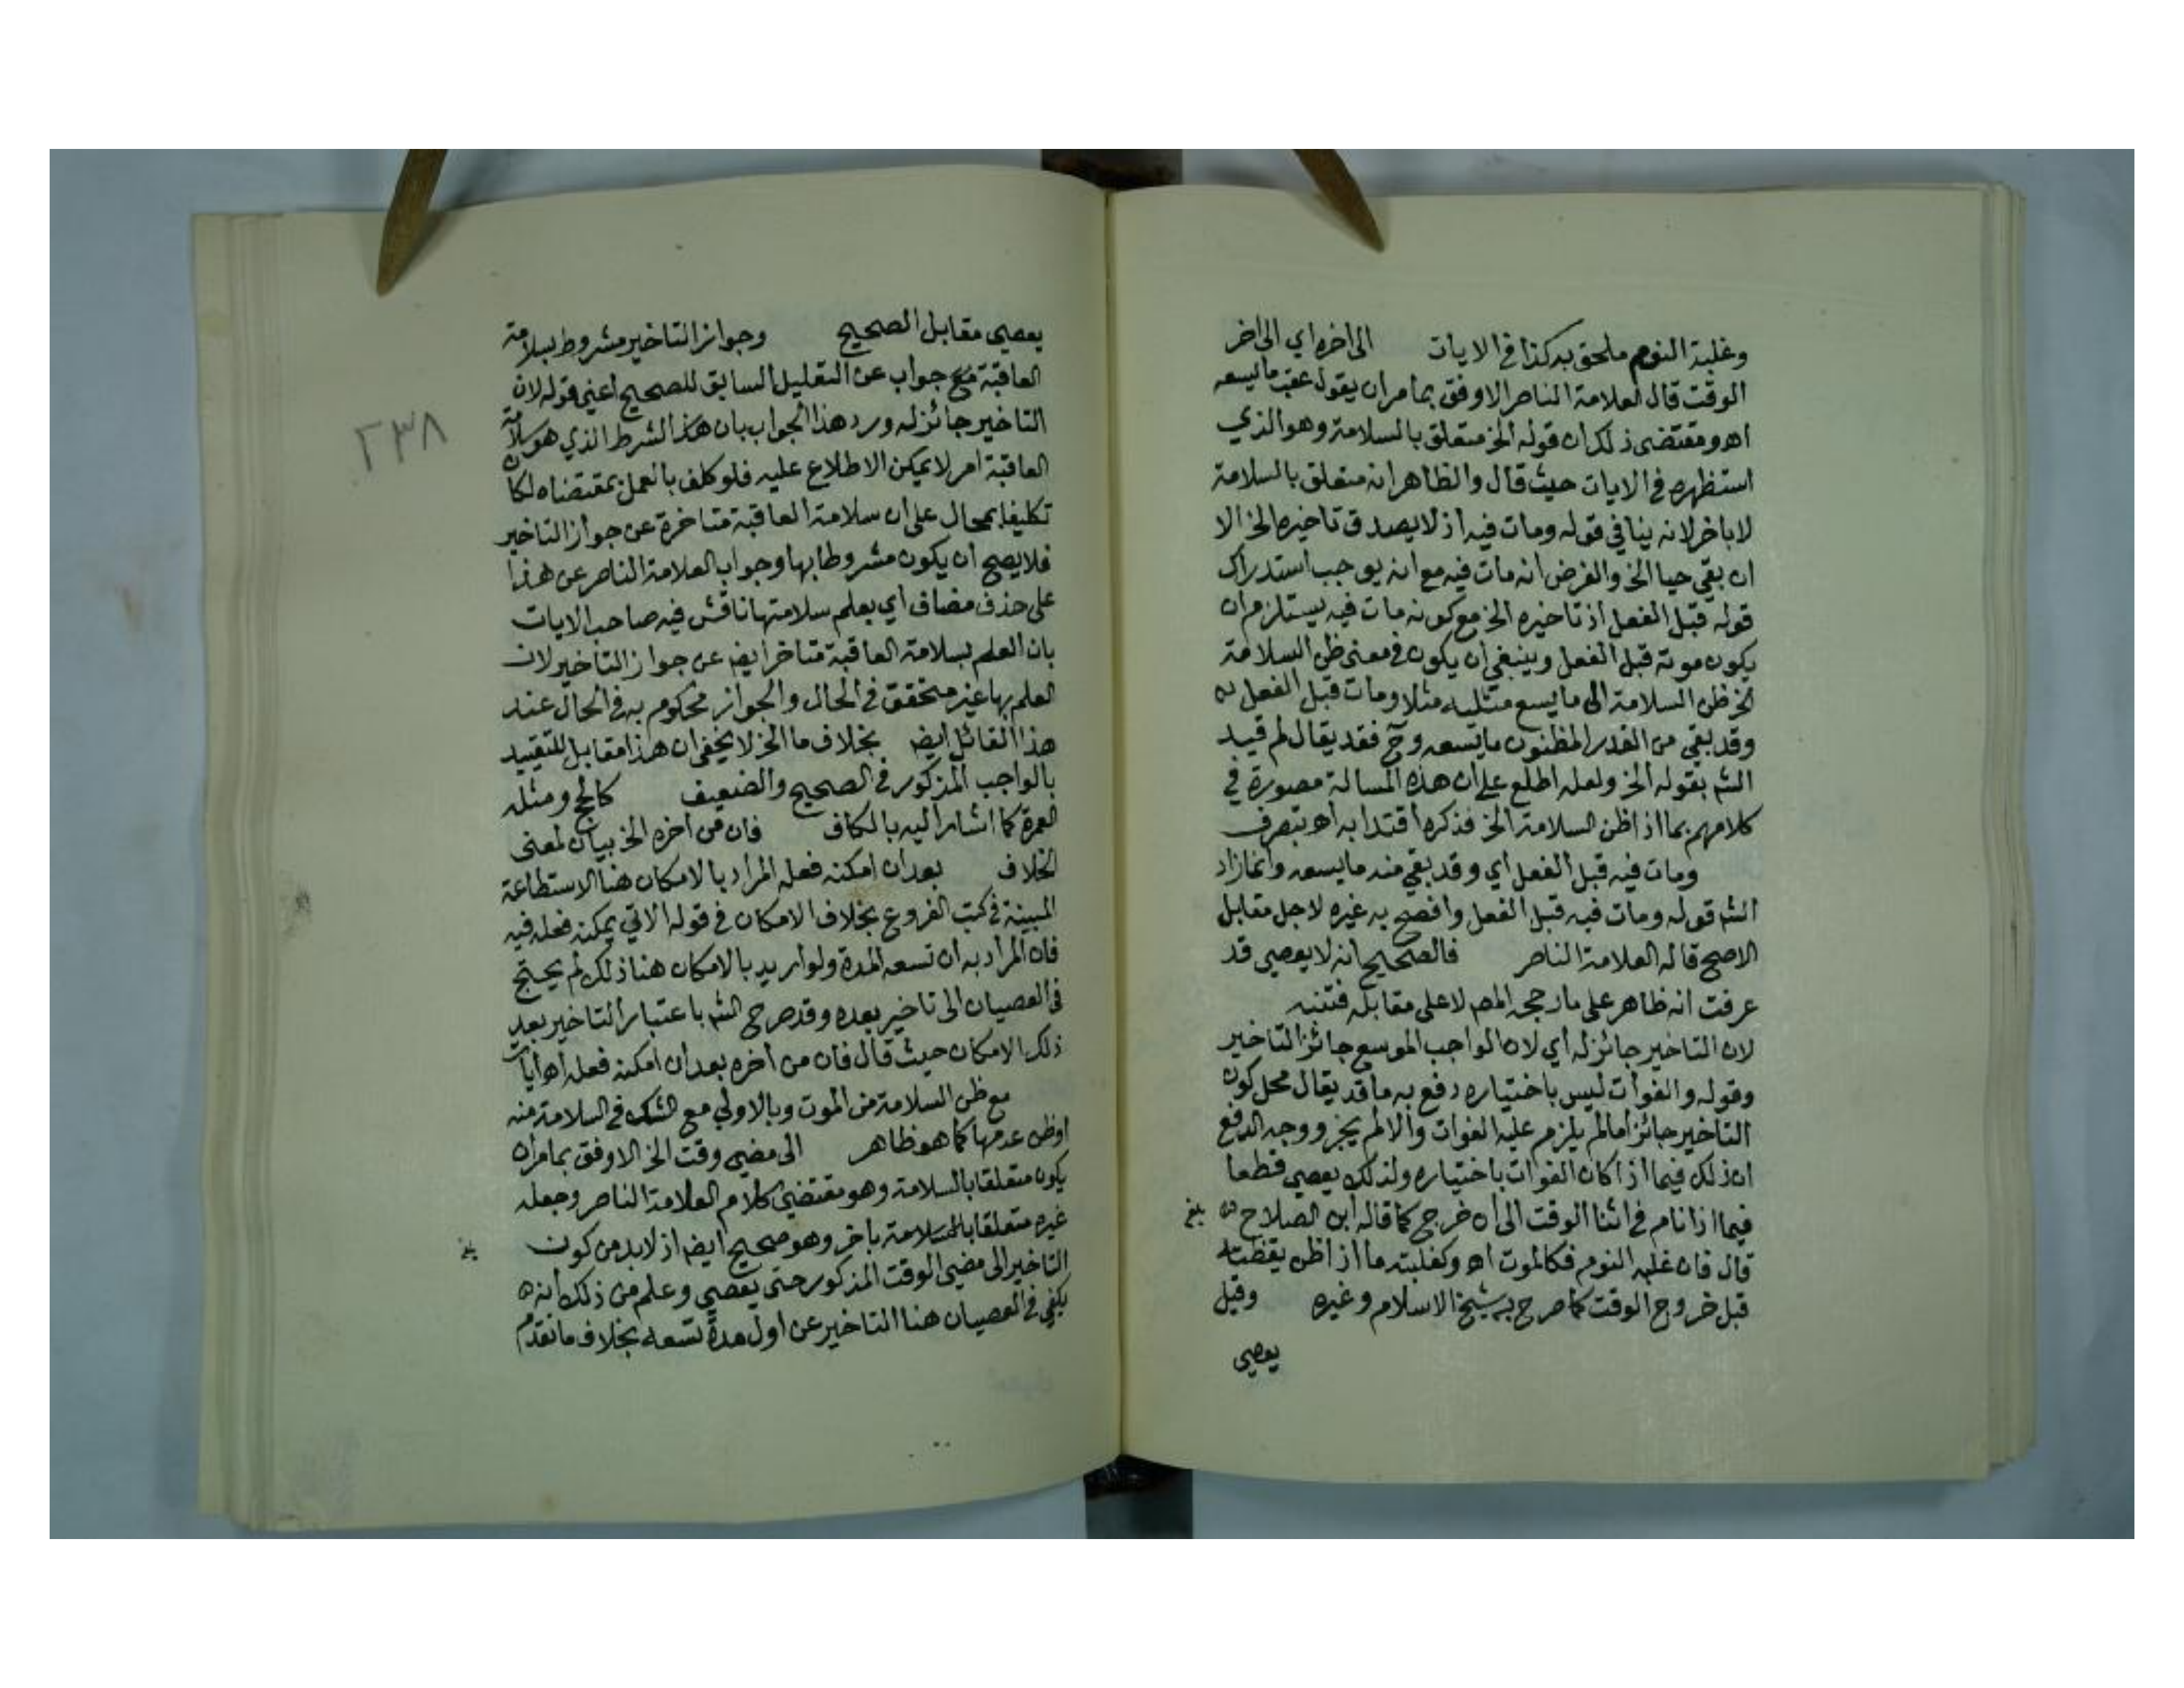 وغلبة النوم ملحق به كذا في الايات الى اخره اي الى اخر
الوقت قال العلامة الناصر الاوفق بما مر ان يقول عقب ما يسعه
اه ومقتضى ذلك ان قوله الخ متعلق بالسلامة وهو الذي
استظهره في الايات حيث قال والظاهر انه متعلق بالسلامة
لا باخر لانه ينافي قوله ومات فيه اذ لا يصدق تاخيره الخ الا
ان بقي حيا الخ والفرض انه مات فيه مع انه يوجب استدراك
قوله قبل الفعل اذ تاخيره الخ مع كونه مات فيه يستلزم ان
يكون موته قبل الفعل وينبغي ان يكون في معنى ظن السلامة
الخ ظن السلامة الى ما يسع مثليه مثلا ومات قبل الفعل
وقد بقي من القدر المظنون ما يسعه وح فقد يقال لم قيد
الشم بقوله الخ ولعله اطلع على ان هذه المسالة مصورة في
كلامهم بما اذا ظن السلامة الخ فذكره اقتدا به اه بتصرف
ومات فيه قبل الفعل اي وقد بقي منه ما يسعه وانما زاد
الشم قوله ومات فيه قبل الفعل وافصح به غيره لاجل مقابل
الاصح قاله العلامة الناصر فالصحيح انه لا يعصي قد
عرفت انه ظاهر على ما رجحه المصم لا على مقابله فتنبه
لان التاخير جائز له اي لان الواجب الموسع جائز التاخير
وقوله والفوات ليس باختياره دفع به ما قد يقال محل كون
التاخير جائزا ما لم يلزم عليه الفوات والا لم يجز ووجه الدفع
ان ذلك فيما اذا كان الفوات باختياره ولذلك يعصي قطعا
فيما اذا نام في اثنا الوقت الى ان خرج كما قاله ابن الصلاح
بلغ
قال فان غلبه النوم فكالموت اه وكغلبته ما اذا ظن يقظته
قبل خروج الوقت كما صرح به شيخ الاسلام وغيره وقيل
يعصي
يعصي مقابل الصحيح وجواز التاخير مشروط بسلامة
العاقبة جواب عن التعليل السابق للصحيح اعني قوله لان
التاخير جائز له ورد هذا الجواب بان هذا الشرط الذي هو سلامة
العاقبة امر لا يمكن الاطلاع عليه فلو كلف بالعمل بمقتضاه لكان
تكليفا بمحال على ان سلامة العاقبة متاخرة عن جواز التاخير
فلا يصح ان يكون مشروطا بها وجواب العلامة الناصر عن هذا
على حذف مضاف اي بعلم سلامتها ناقش فيه صاحب الايات
بان العلم بسلامة العاقبة متاخر ايضا عن جواز التاخير لان
العلم بها غير متحقق في الحال والجواز محكوم به في الحال عند
هذا القائل ايضا بخلاف ما الخ لا يخفى ان هذا مقابل للتقييد
بالواجب المذكور في الصحيح والضعيف كالحج ومثله
العمرة كما اشار اليه بالكاف فان من اخره الخ بيان لمعنى
الخلاف بعد ان امكنه فعله المراد بالامكان هنا الاستطاعة
المبينة في كتب الفروع بخلاف الامكان في قوله الاتي يمكنه فعله فيه
فان المراد به ان تسعه المدة ولو اريد بالامكان هنا ذلك لم يحتج
في العصيان الى تاخير بعده وقد صرح الشم باعتبار التاخير بعد
ذلك الامكان حيث قال فان من اخره بعد ان امكنه فعله اه ايات
مع ظن السلامة من الموت وبالاولى مع الشك في السلامة منه
او ظن عدمها كما هو ظاهر الى مضي وقت الخ الاوفق بما مر ان
يكون متعلقا بالسلامة وهو مقتضى كلام العلامة الناصر وجعله
غيره متعلقا باخر وهو صحيح ايضا اذ لابد من كون
بلغ
التاخير الى مضي الوقت المذكور حتى يعصي وعلم من ذلك انه
يكفي في العصيان هنا التاخير عن اول مدة تسعه بخلاف ما تقدم
٢٣٨